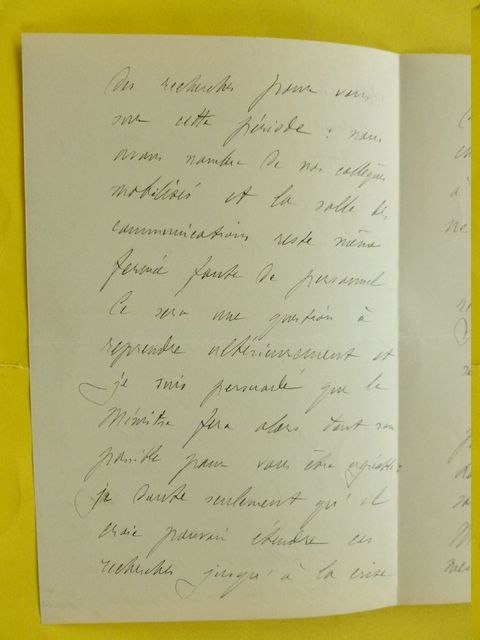 des recherches pour vous
sur cette période : nous
avons nombre de nos collègues
mobilisés et la salle des
communications reste même
fermée faute de personnel
Ce sera une question à
reprendre ultérieurement et
je suis persuadé que le
Ministre fera alors tout son
possible pour vous être agréable ;
je doute seulement qu'il
croie pouvoir étendre ces
recherches jusqu'à la crise